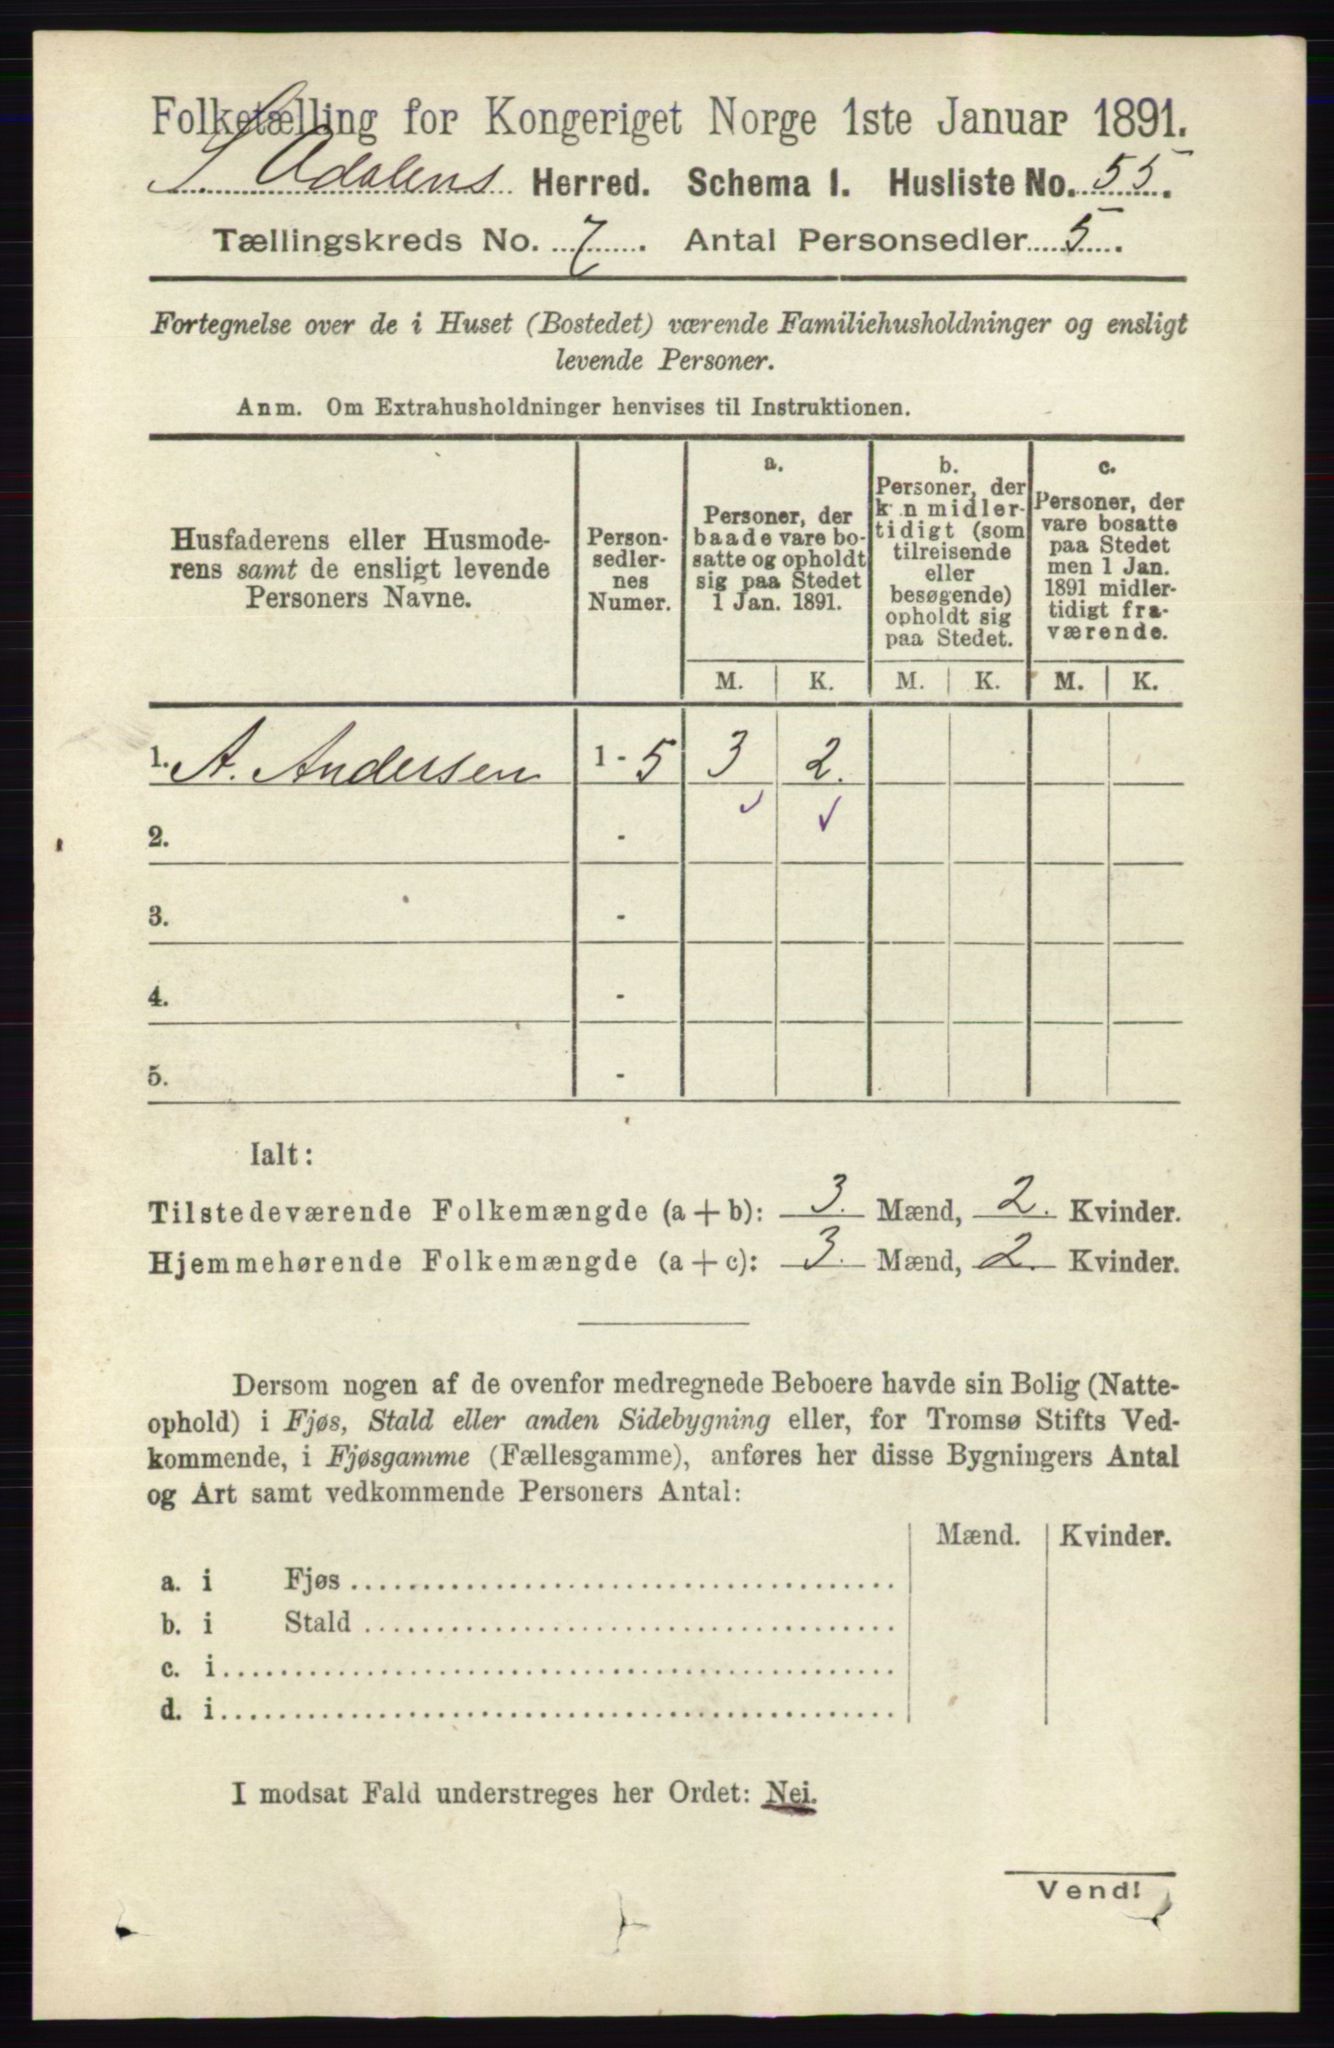 Folketælling for Kongeriget Norge 1ste Januar 1891.
S. Adalens Herred. Schema 1. Husliste No. 55.
Tællingskreds No. 7. Antal Personsedler 5.
Fortegnelse over de i Huset (Bostedet) værende Familiehusholdninger og ensligt
levende Personer.
Anm. Om Extrahusholdninger henvises til Instruktionen.
Husfaderens eller Husmode-
rens samt de ensligt levende
Personers Navne.
Person-
sedler-
nes
Numer.
a.
Personer, der
baade vare bo-
satte og opholdt
sig paa Stedet
1 Jan. 1891.
b.
Personer, der
kun midler-
tidigt (som
tilreisende
eller
besøgende)
opholdt sig
paa Stedet.
c.
Personer, der
vare bosatte
paa Stedet
men 1 Jan.
1891 midler-
tidigt fra-
værende.
M. K. M. K. M. K.
1. A. Andersen 1 - 5 3 2.
2. -
3. -
4. -
5. -
Ialt:
Tilstedeværende Folkemængde (a + b): 3. Mænd, 2. Kvinder.
Hjemmehørende Folkemængde (a + c): 3. Mænd, 2. Kvinder.
Dersom nogen af de ovenfor medregnede Beboere havde sin Bolig (Natte-
ophold) i Fjøs, Stald eller anden Sidebygning eller, for Tromsø Stifts Ved-
kommende, i Fjøsgamme (Fællesgamme), anføres her disse Bygningers Antal
og Art samt vedkommende Personers Antal:
Mænd. Kvinder.
a. i Fjøs
b. i Stald
c. i
d. i
I modsat Fald understreges her Ordet: Nei.
Vend!